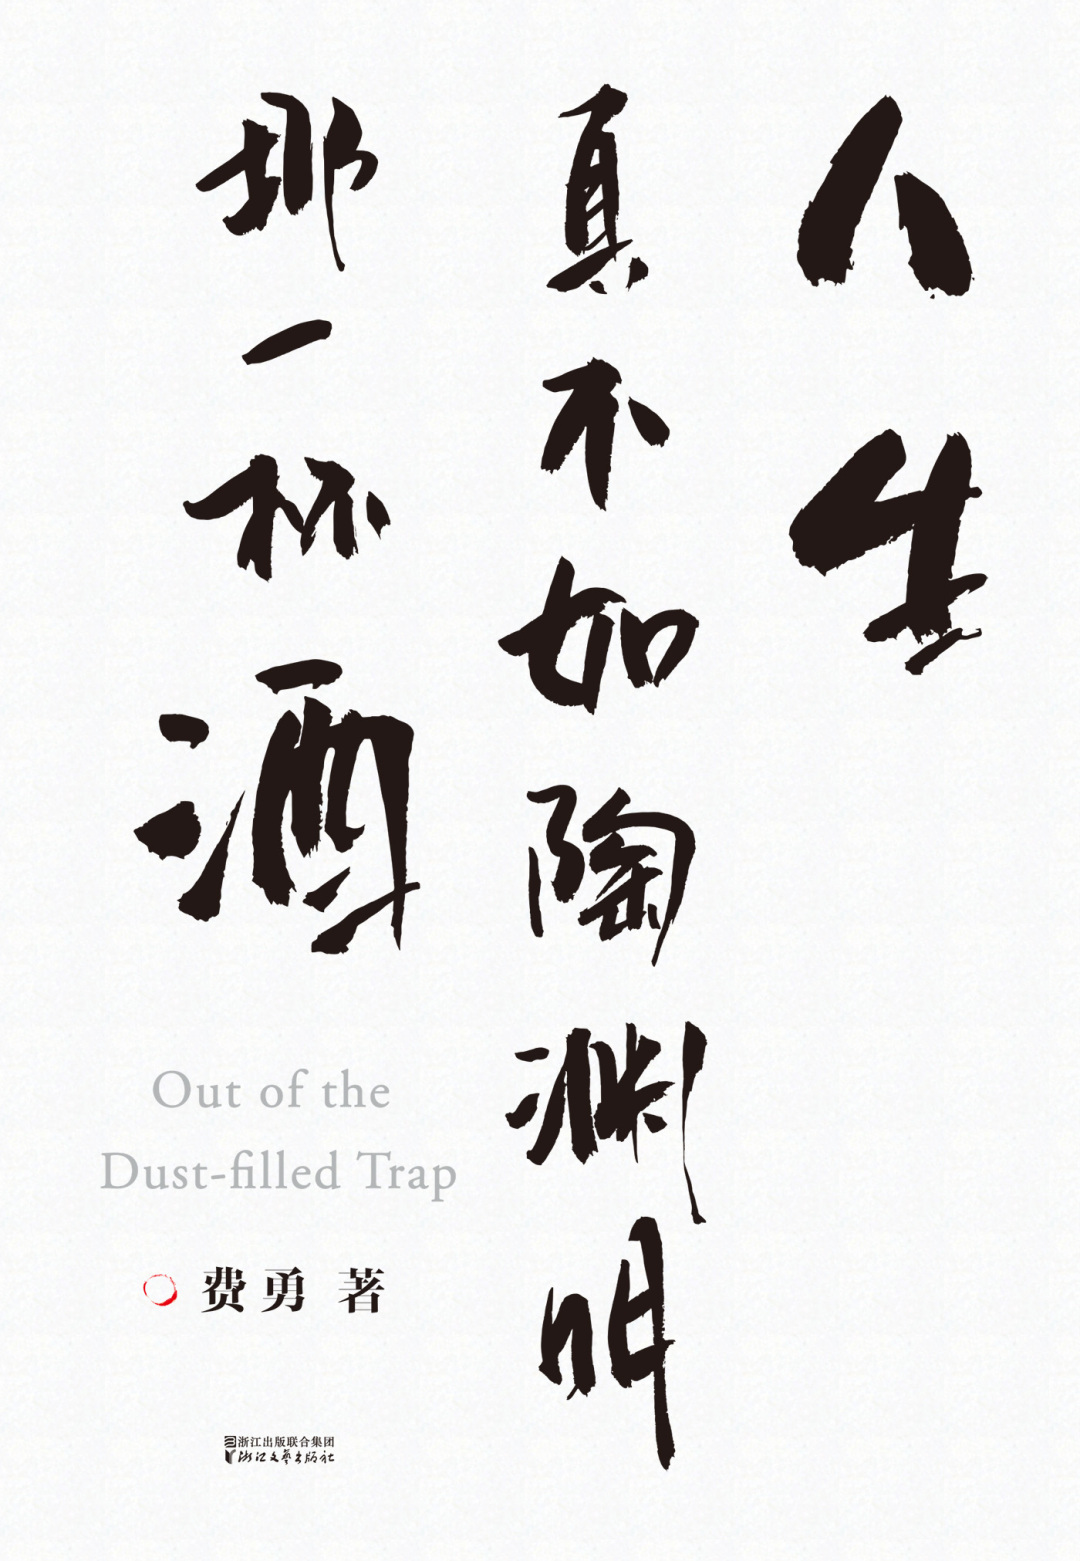 人生
真不如陶渊明
那一杯酒
Out of the
Dust-filled Trap
费勇 著
浙江出版联合集团
浙江文艺出版社